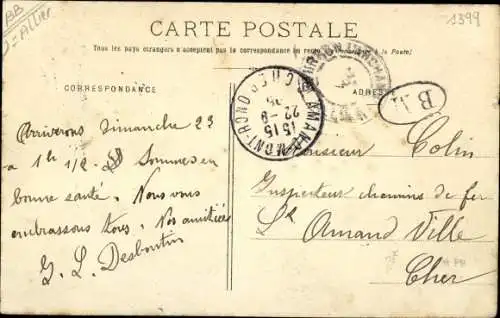 BB
Allier
1399
CARTE POSTALE
Tous les pays étrangers n'acceptent pas la correspondance au recto (Se renseigner à la Poste)
CORRESPONDANCE
ADRESSE
ST AMAND-MONT-ROND CHER
15 15
22-8
BA
Arriverons Dimanche 23
a 1h 1/2. Sommes en
bonne santé. Nous vous
embrassons tous. Nos amitiés
G. L. Desboutin
Monsieur Colin
Inspecteur chemins de fer
St Amand Ville
Cher